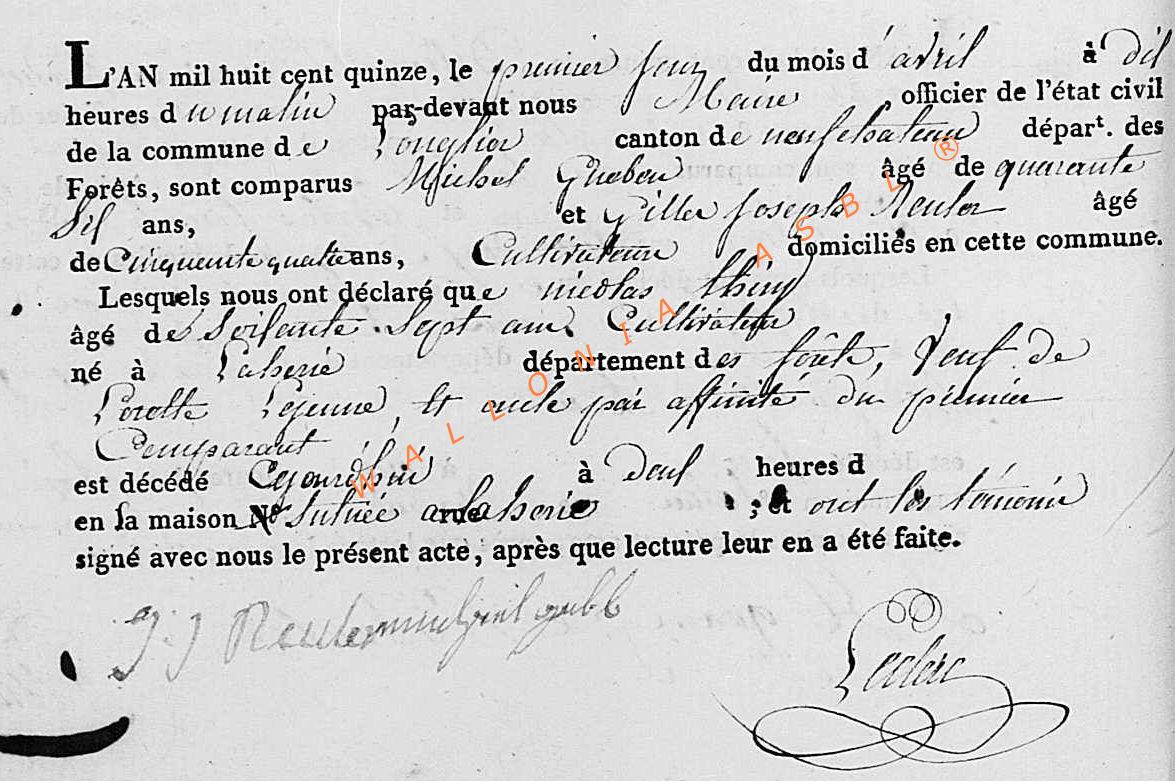 L'AN mil huit cent quinze, le premier jour du mois d'avril à dix
heures du matin par-devant nous Maire officier de l'état civil
de la commune de Longlier canton de neufchateau départ. des
Forêts, sont comparus Michel âgé de quarante
six ans, et Gille Joseph Reuter âgé
de Cinquante quatre ans, Cultivateur domiciliés en cette commune.
Lesquels nous ont déclaré que nicolas thiry
âgé de Soixante Sept ans Cultivateur
né à Laherié département des forêts, Veuf de
Lejeune, et oncle par affinité du premier
Comparant
est décédé Cejourdhui à deux heures d
en sa maison N° Situéé a laherie ; et ont les témoins
signé avec nous le présent acte, après que lecture leur en a été faite.
g. j Reuter
Leclerc
WALLONIA ASBL ®